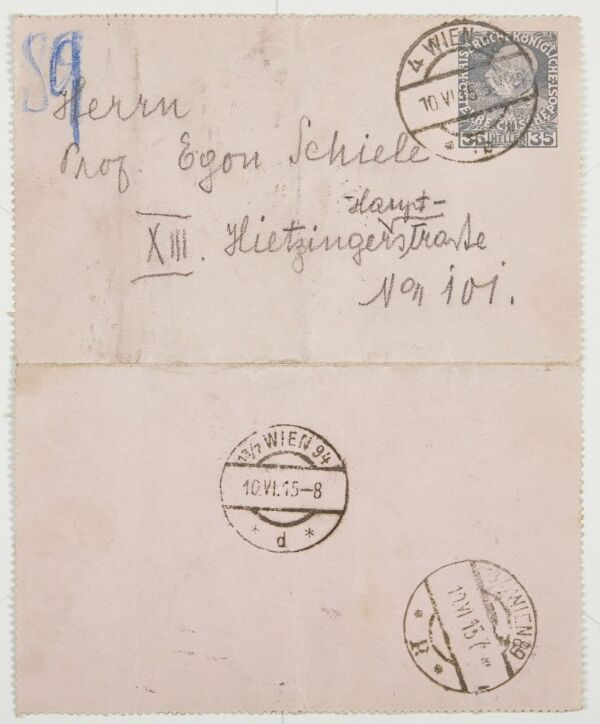 59
4 WIEN
10.VI.15
35 HELLER 35
Herrn
Prof. Egon Schiele
Haupt-
XIII. Hietzingerstraße
No 101.
13/7 WIEN 94
10.VI.15-8
* d *
WIEN 89
10.VI.15